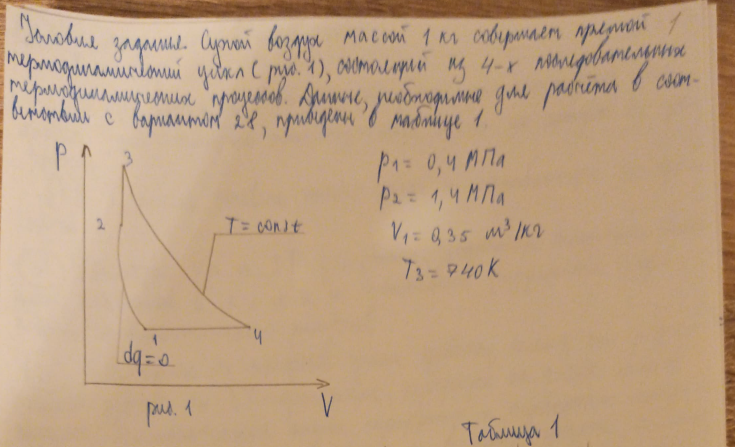 Условие задания. Сухой воздух массой 1 кг совершает прямой 1
термодинамический цикл (рис. 1), состоящий из 4-х последовательных
термодинамических процессов. Данные, необходимые для расчёта в соот-
ветствии с вариантом 28, приведены в таблице 1.
P
3
p1 = 0,4 МПа
p2 = 1,4 МПа
2
T = const
V1 = 0,35 м³/кг
T3 = 740К
1
4
dq = 0
рис. 1
V
Таблица 1